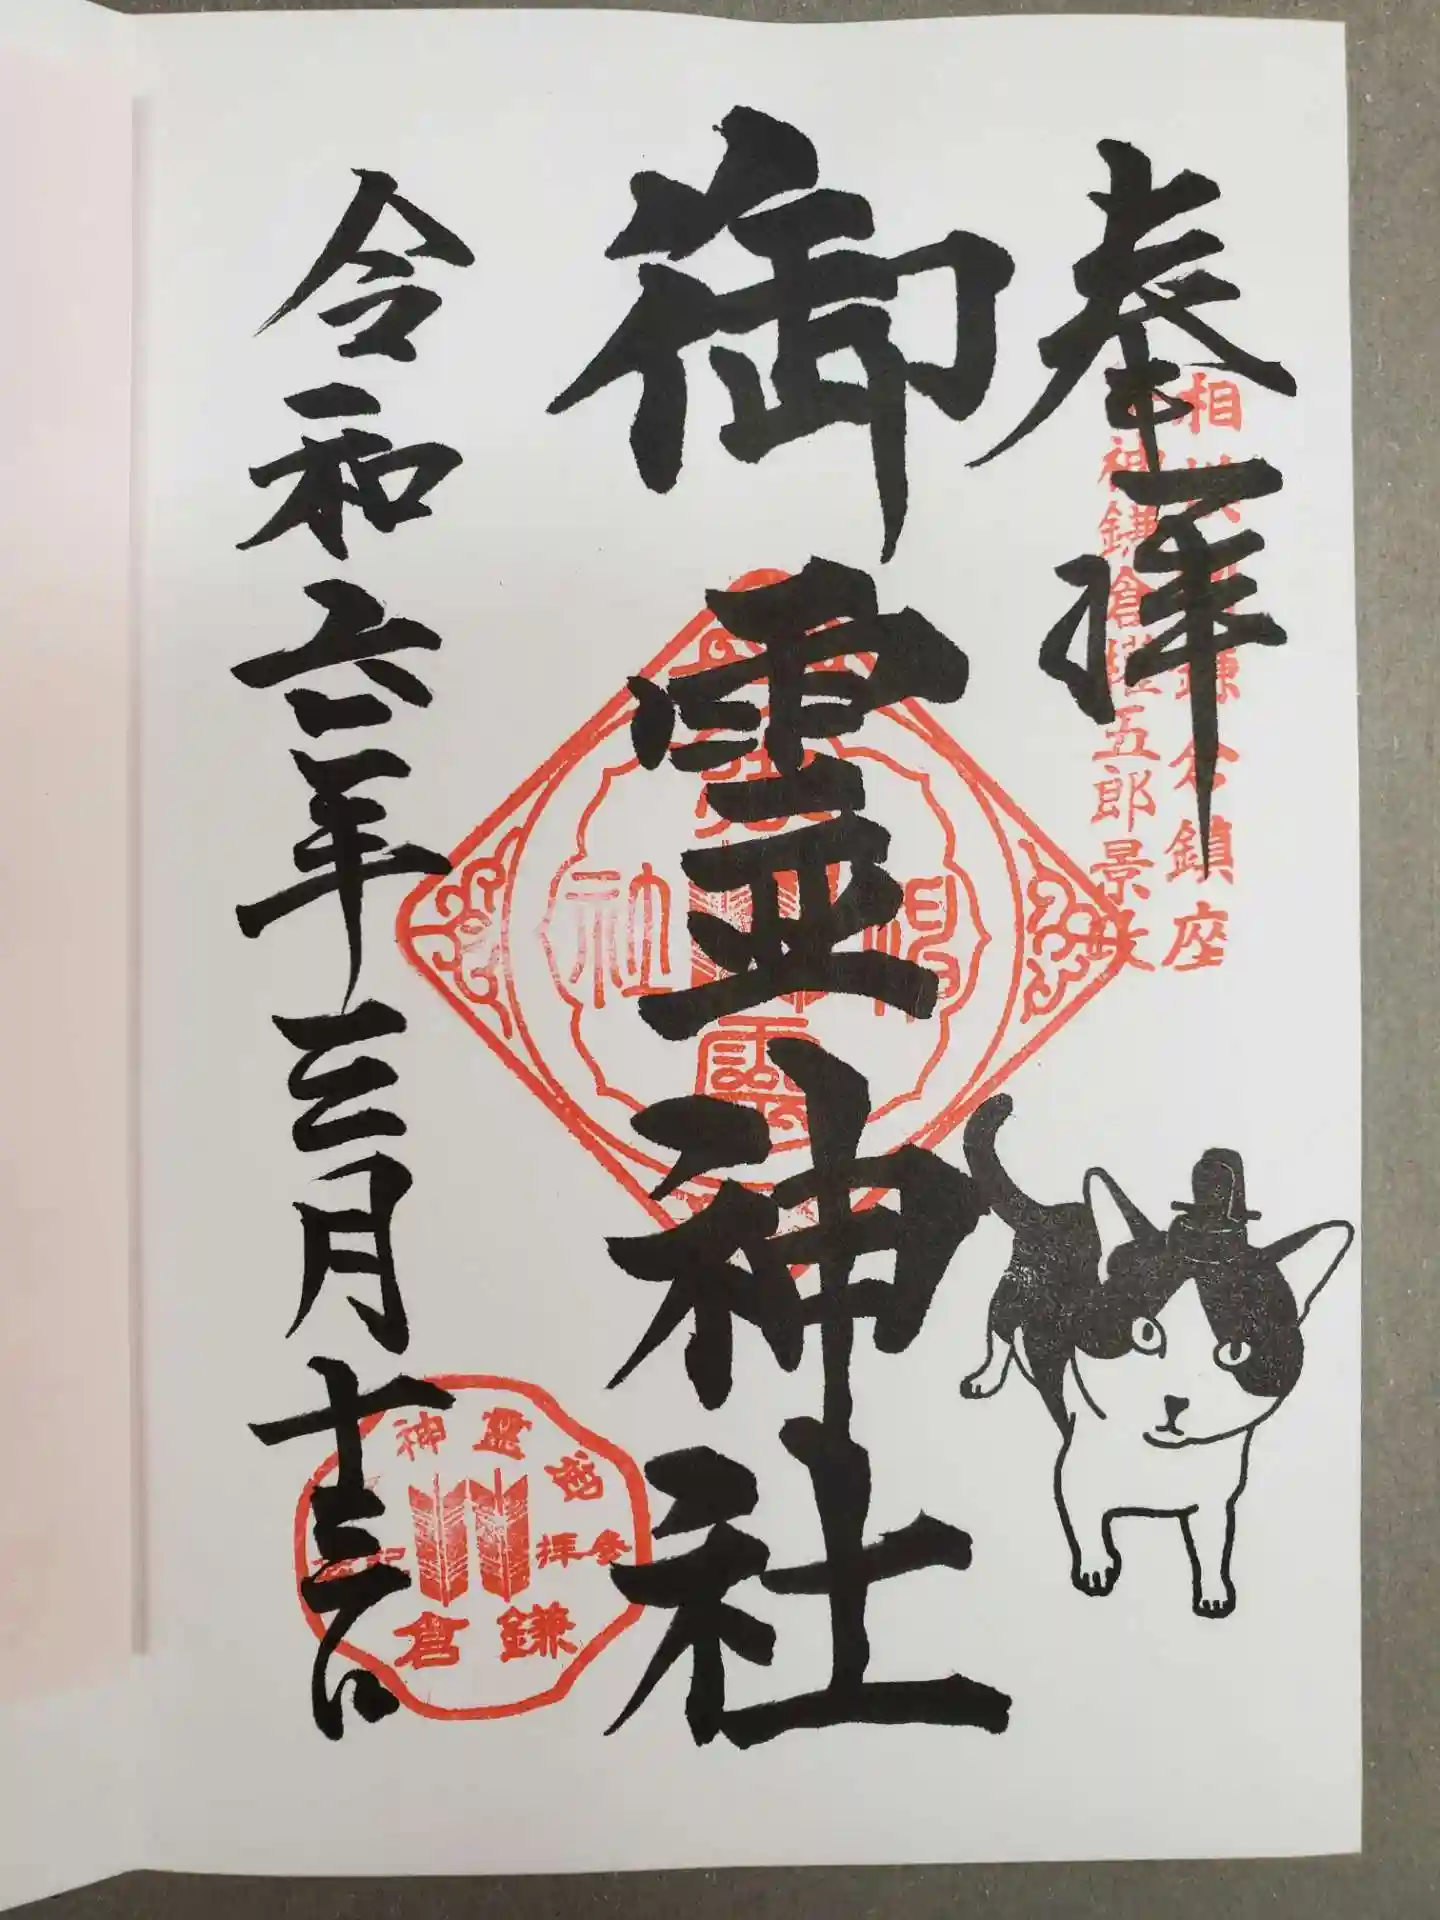 奉拝
相模国鎌倉鎮座
祭神鎌倉権五郎景政
御霊神社
令和六年三月十三日
御霊神社
御霊神
参拝
鎌倉